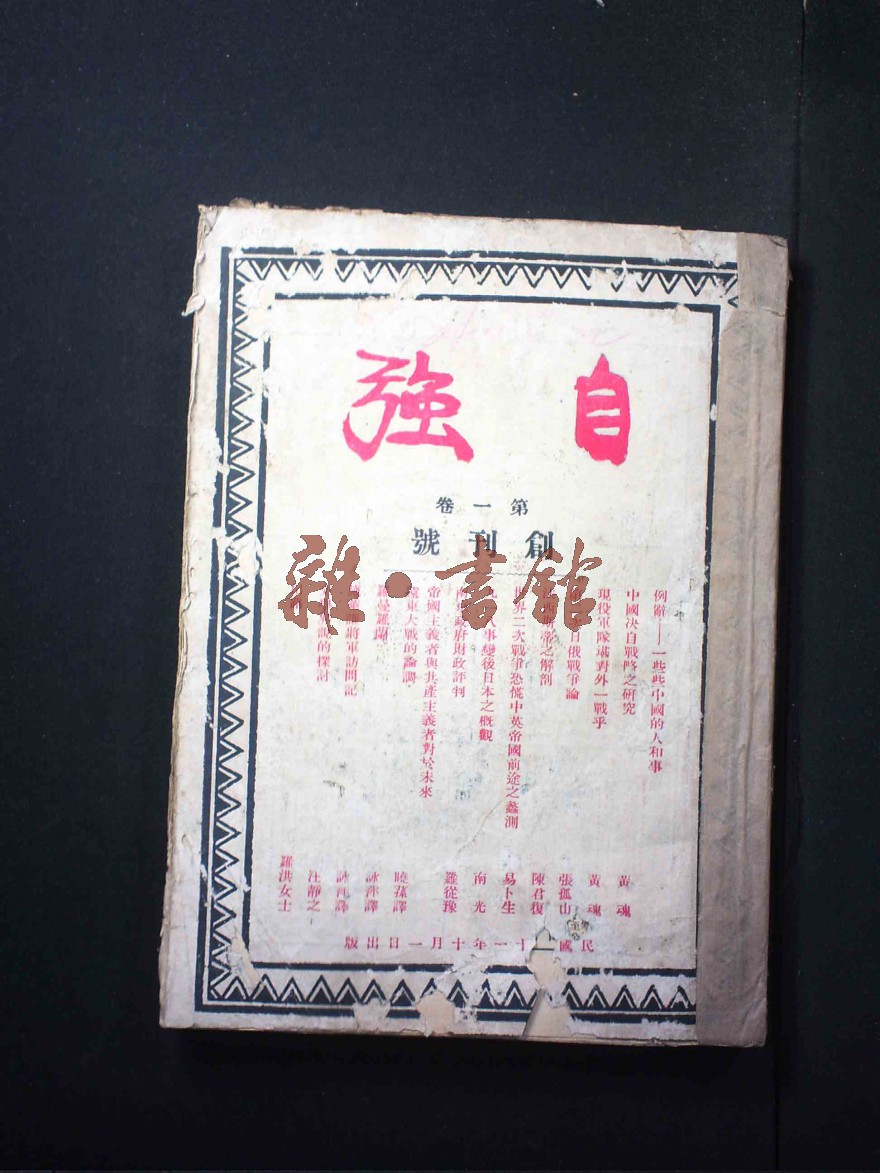 自強
第一卷
創刊號
雜·書館
例辭——一些些中國的人和事
中國決自戰略之研究
現役軍隊堪對外一戰乎
日俄戰爭論
之解剖
世界二次戰爭恐慌中英帝國前途之蠡測
事變後日本之概觀
政府財政評判
帝國主義者與共產主義者對於未來
遠東大戰的論調
羅曼羅蘭
將軍訪問記
的探討
黃魂
黃魂
張孤山
陳君復
易卜生
南光
羅從豫
曉蓀譯
詠萍譯
詠萍譯
汪靜之
羅洪女士
民國二十一年十月一日出版